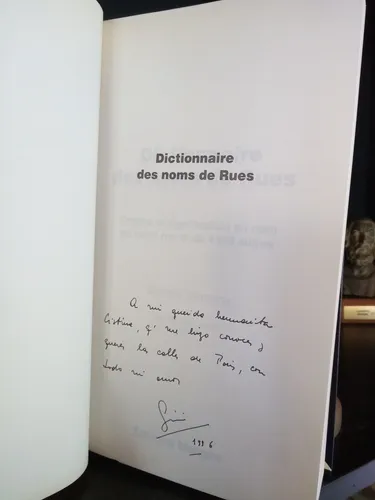 Dictionnaire
des noms de Rues
A mi querida hermanita
Cristina, q' me hizo conocer y
querer la calle de Paris, con
todo mi amor
1996